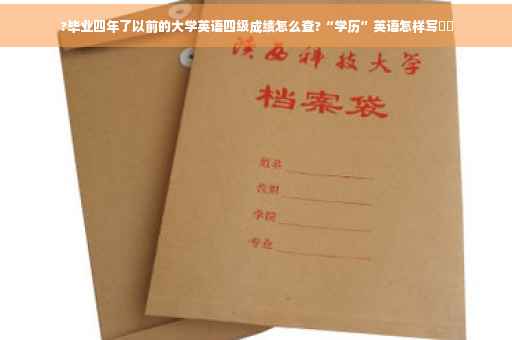 ?毕业四年了以前的大学英语四级成绩怎么查?“学历”英语怎样写
陕西科技大学
档案袋
姓名
学院
专业